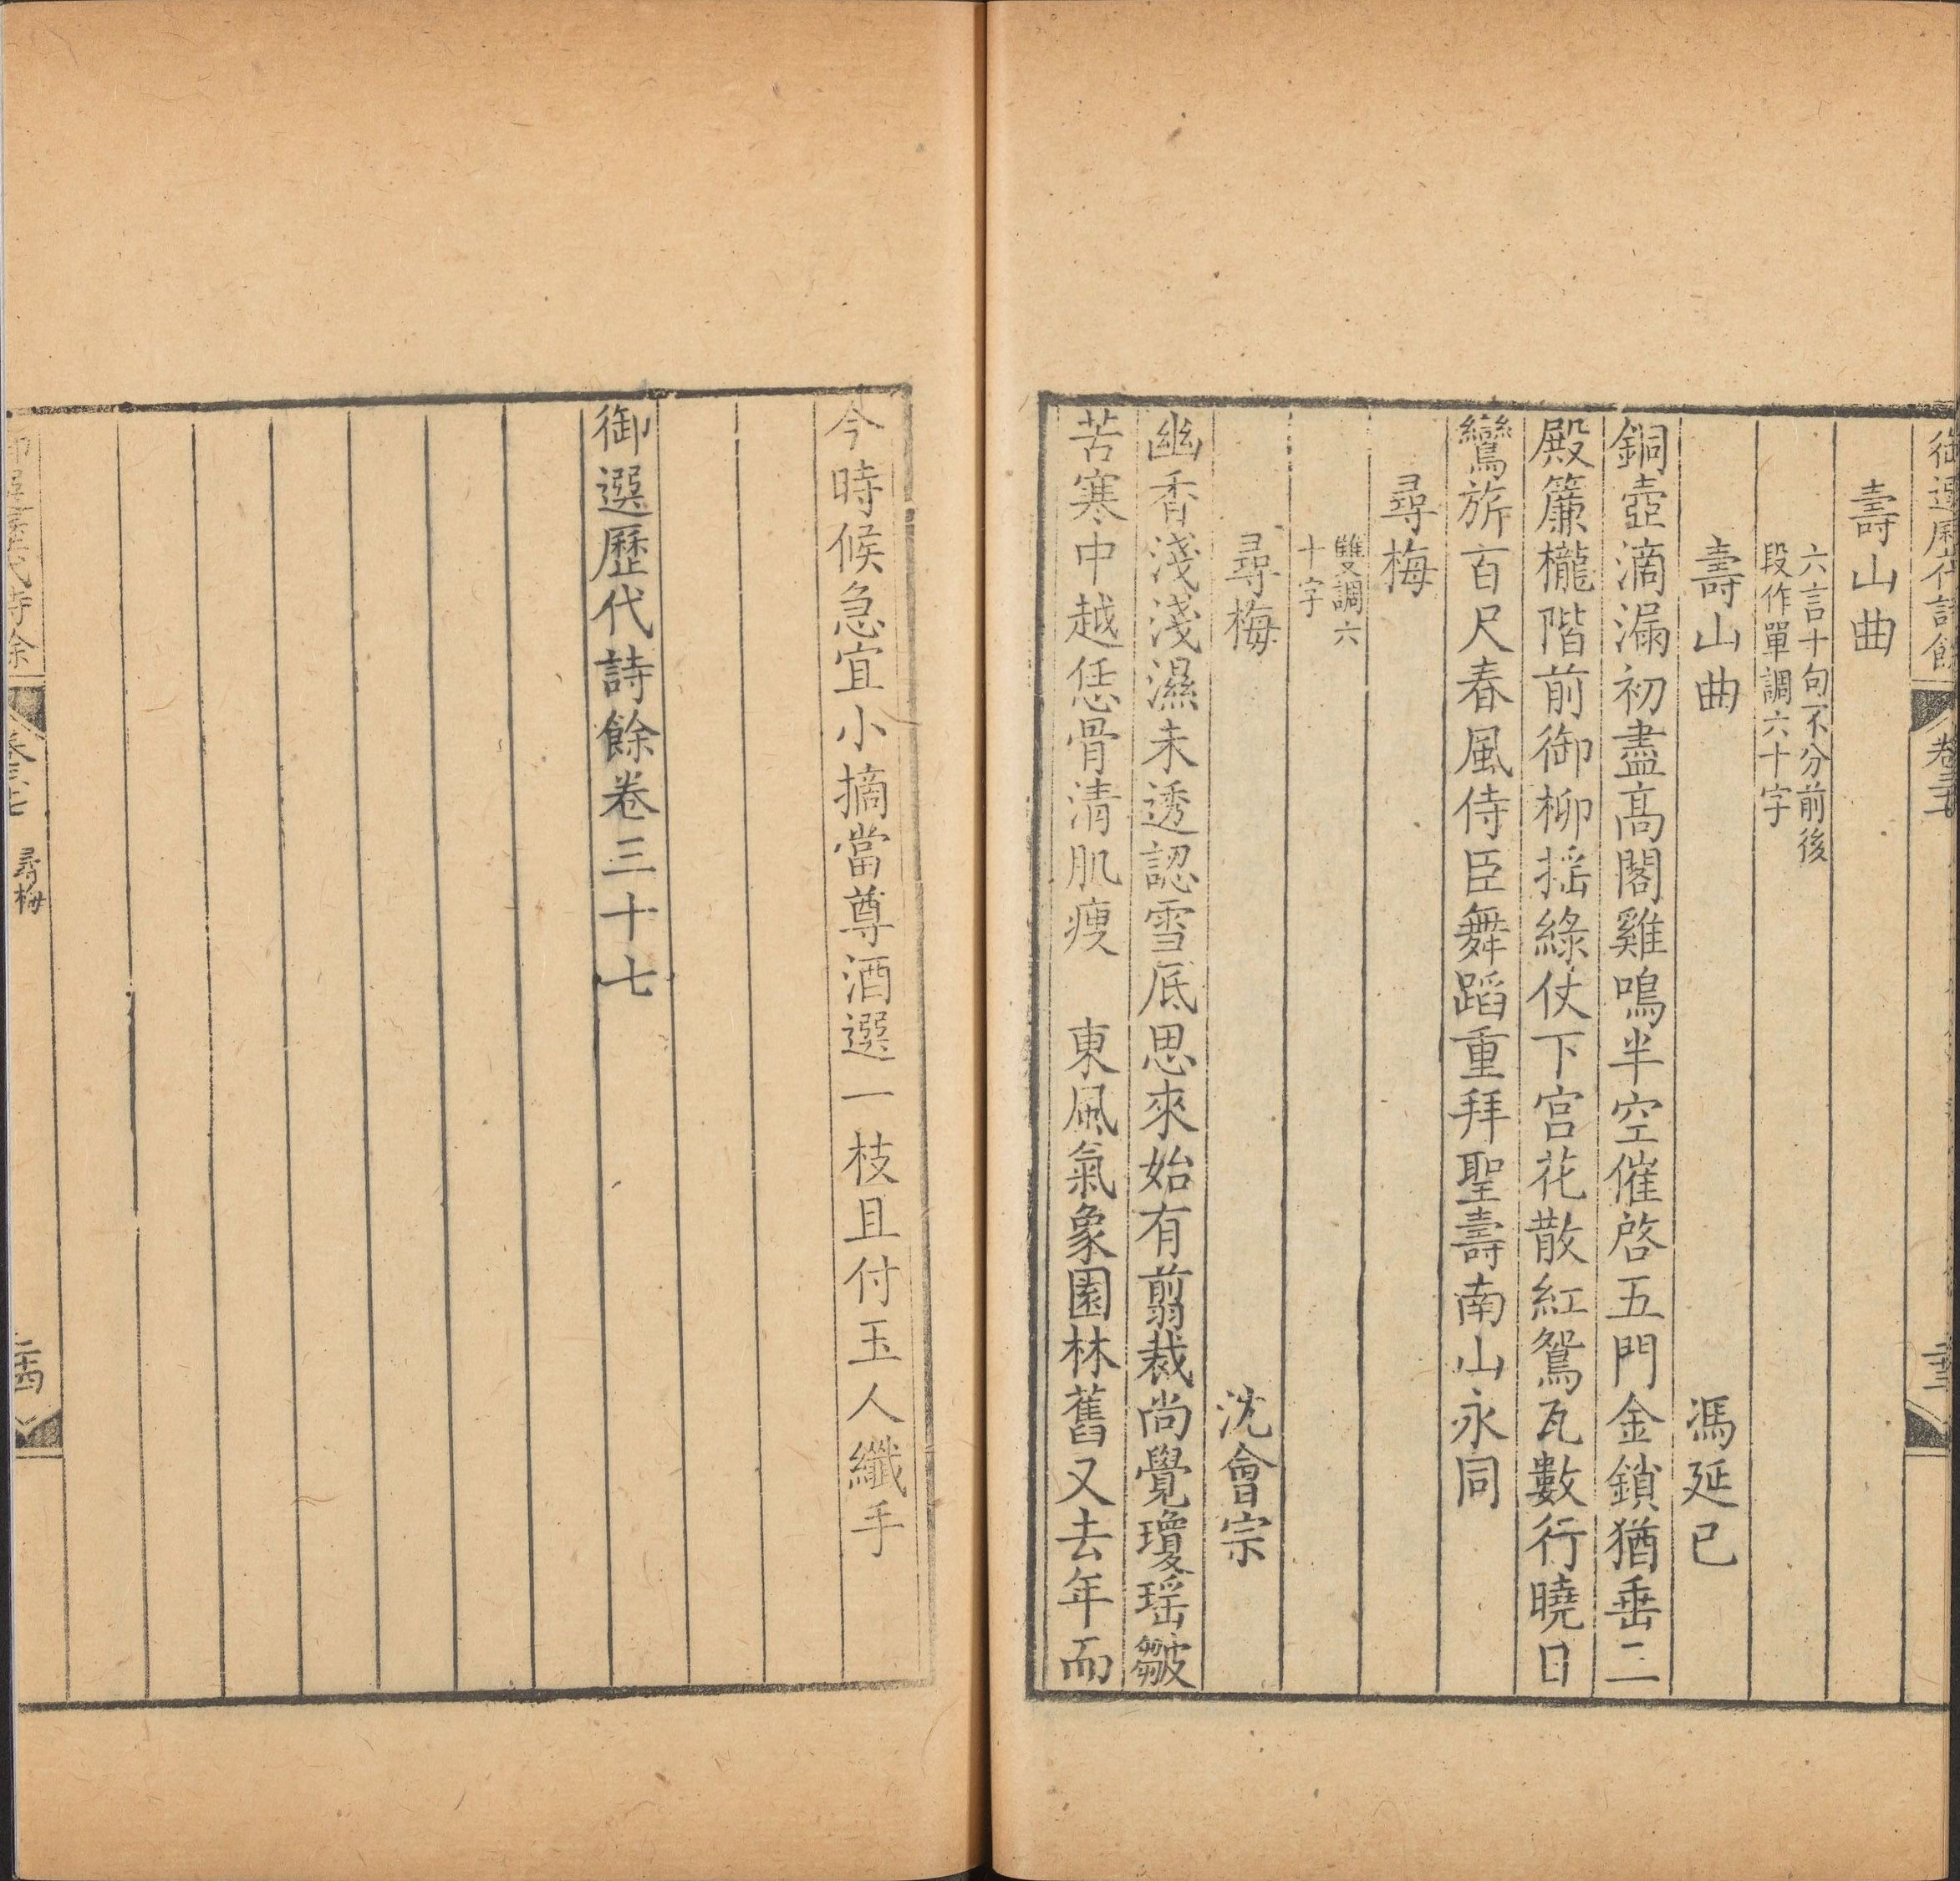 御選歷代詩餘
卷三十七
壽山曲
六言十句不分前後
段作單調六十字
壽山曲 馮延已
銅壺滴漏初盡高閣雞鳴半空催啓五門金鎖猶垂二
殿簾櫳階前御柳揺綠仗下宮花散紅鴛瓦數行曉日
鸞旂百尺春風侍臣舞蹈重拜聖壽南山永同
尋梅
雙調六
十字
尋梅 沈會宗
幽香淺淺濕未透認雪底思來始有翦裁尚覺瓊瑤皺
苦寒中越恁骨清肌瘦 東風氣象園林舊又去年而
今時候急宜小摘當尊酒選一枝且付玉人纖手
御選歷代詩餘卷三十七
卷三十七
尋梅